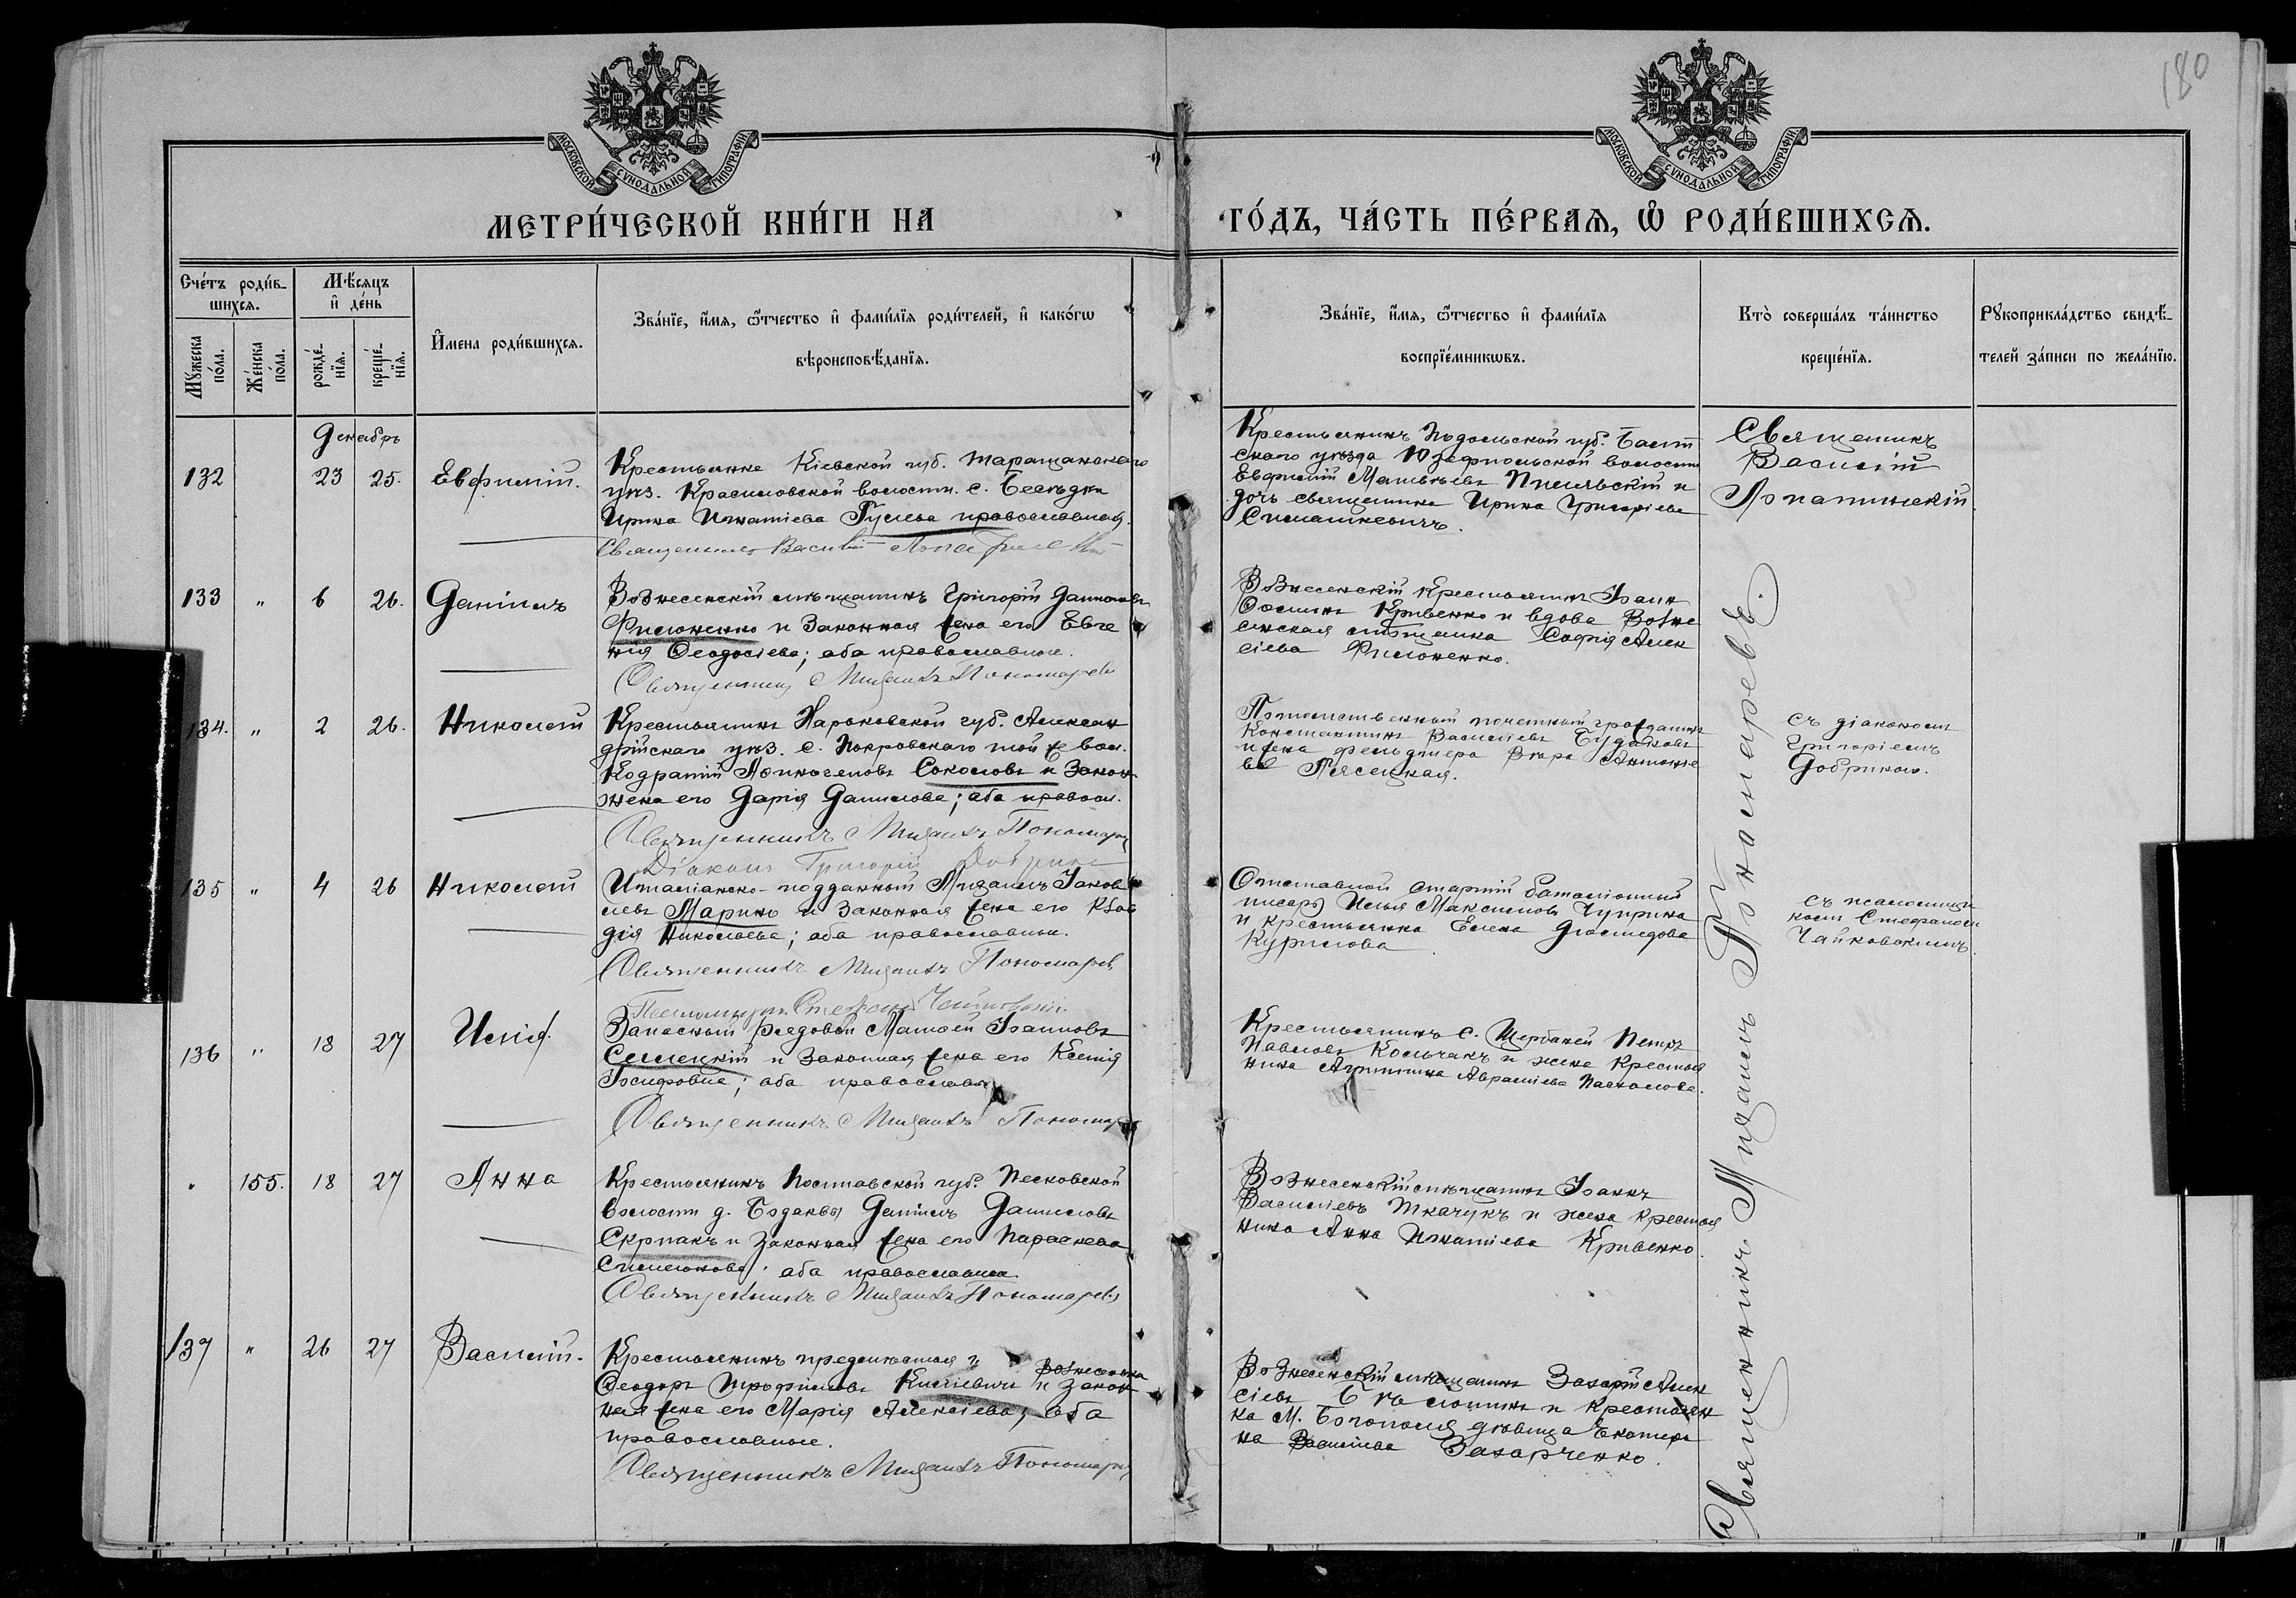 180
МОСКОВСКОЙ СУНОДАЛЬНОЙ ТИПОГРАФІИ
МОСКОВСКОЙ СУНОДАЛЬНОЙ ТИПОГРАФІИ
МЕТРИ́ЧЕСКОЙ КНИ́ГИ НА
ГО́ДЪ, ЧА́СТЬ ПЕ́РВАѦ, Ѽ РОДИ́ВШИХСѦ.
Сче́тъ роди́в-
шихсѧ.
Мѣ́сѧцъ
и҆ де́нь
Мꙋ́жеска по́ла.
Же́нска по́ла.
рожде́-нїѧ.
креще́-нїѧ.
И҆мена роди́вшихсѧ.
Зва́нїе, и҆́мѧ, ѻ҆́тчество и҆ фами́лїѧ роди́телей, и҆ како́гѡ
вѣроисповѣ́данїѧ.
Зва́нїе, и҆́мѧ, ѻ҆́тчество и҆ фами́лїѧ
воспрїе́мникѡвъ.
Кто̀ соверша́лъ та́инство
креще́нїѧ.
Рꙋкоприкла́дство свидѣ́-
телей за́писи по жела́нїю.
Декабрь
132 23 25. Евфимій.
Крестьянка Кіевской губ. Таращанскаго
уѣз. Красиловской волости. с. Бесѣдки
Ирина Игнатіева Гусева православная.
Священникъ Василій Лопатинскій
Крестьянинъ Подольской губ. Балт
скаго уѣзда Юзефпольской волости
Евфимій Матвѣевъ и
дочь священника Ирина Григоріева
Симашкевичъ.
Священникъ
Василій
Лопатинскій
133 " 6 26. Даніилъ
Вознесенскій мѣщанинъ Григорій Данииловъ
Филоненко и законная жена его Евге
нія Ѳеодосіева; оба православные.
Священникъ Михаилъ Пономаревъ
Вознесенскій крестьянинъ Іоаннъ
Кривенко и вдова Возне
сенская мѣщанка Софія Алек
сіева Филоненко.
134. " 2 26. Николай
Крестьянинъ Харьковской губ. Алексан
дрійскаго уѣз. с. Покровскаго той же вол.
Кодратій Соколовъ и закон
жена его Дарія Даниилова; оба правосл.
Священникъ Михаилъ Пономаревъ
Діаконъ Григорій Добринъ
Потомственный почетный гражданинъ
Константинъ Василіевъ Будаковъ
и жена фельдшера Вѣра Антоніе
ва Пясецкая.
съ діакономъ
Григоріемъ
Добринымъ.
135 " 4 26 Николай
Италіанско-подданный Михаилъ Іаков
левъ Марино и законная жена его Клав
дія Николаева; оба православные.
Священникъ Михаилъ Пономаревъ
Псаломщикъ Стефанъ Чайковскій
Отставной старшій баталіонный
писарь Илья Максимовъ Чуприна
и крестьянка Елена Діомидова
Курилова
съ псаломщи
комъ Стефаномъ
Чайковскимъ.
136 " 18 27 Илія.
Запасный рядовой Матѳей Іоанновъ
Семецкій и законная жена его Ксенія
Іосифовна; оба православные
Священникъ Михаилъ Пономаревъ
Крестьянинъ с. Щербаней Петръ
Павловъ Кольчакъ и жена крестья
нина Агрипина Авраміева Пасхалова.
" 155. 18 27 Анна
Крестьянинъ Полтавской губ. Песковской
волости д. Бодаквы Даніилъ Данииловъ
Скрпакъ и законная жена его Параскева
Симеонова; оба православные.
Священникъ Михаилъ Пономаревъ
Вознесенскій мѣщанинъ Іоаннъ
Василіевъ Ткачукъ и жена крестья
нина Анна Игнатіева Кривенко.
137 " 26 27 Василій.
Крестьянинъ предмѣстья г. Вознесенска
Ѳеодоръ Трофимовъ и закон
ная жена его Марія Алексіева; оба
православные.
Священникъ Михаилъ Пономаревъ
Вознесенскій мѣщанинъ Захарій Алек
сіевъ и крестьян
ка м. Богополя дѣвица Екатери
на Василіева Захарченко.
Священникъ Михаилъ Пономаревъ.